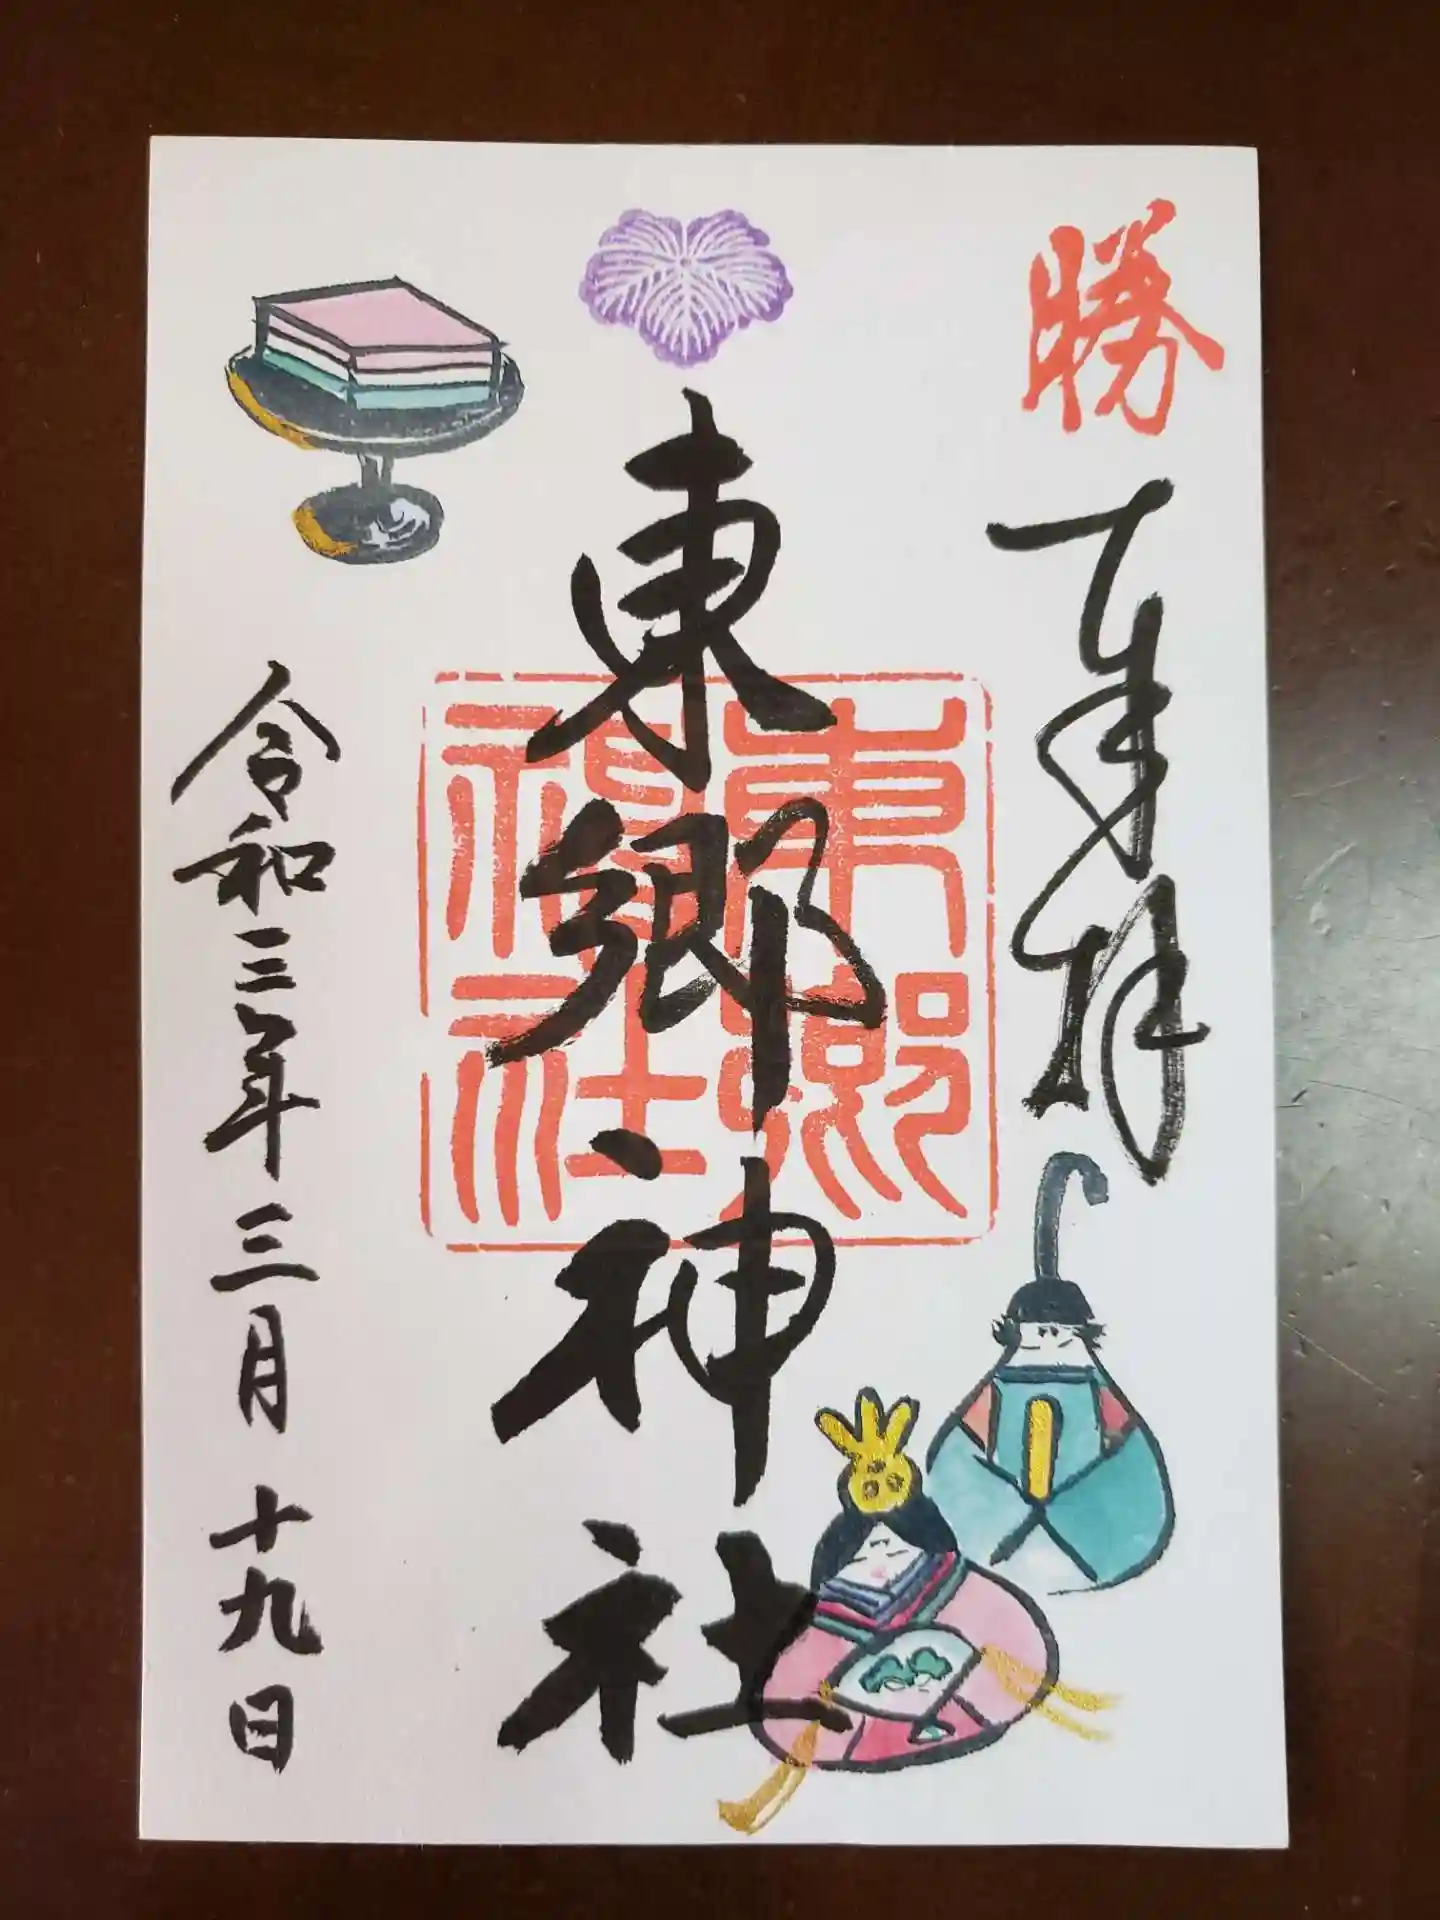 勝
奉拝
東郷神社
東郷神社
令和三年三月十九日